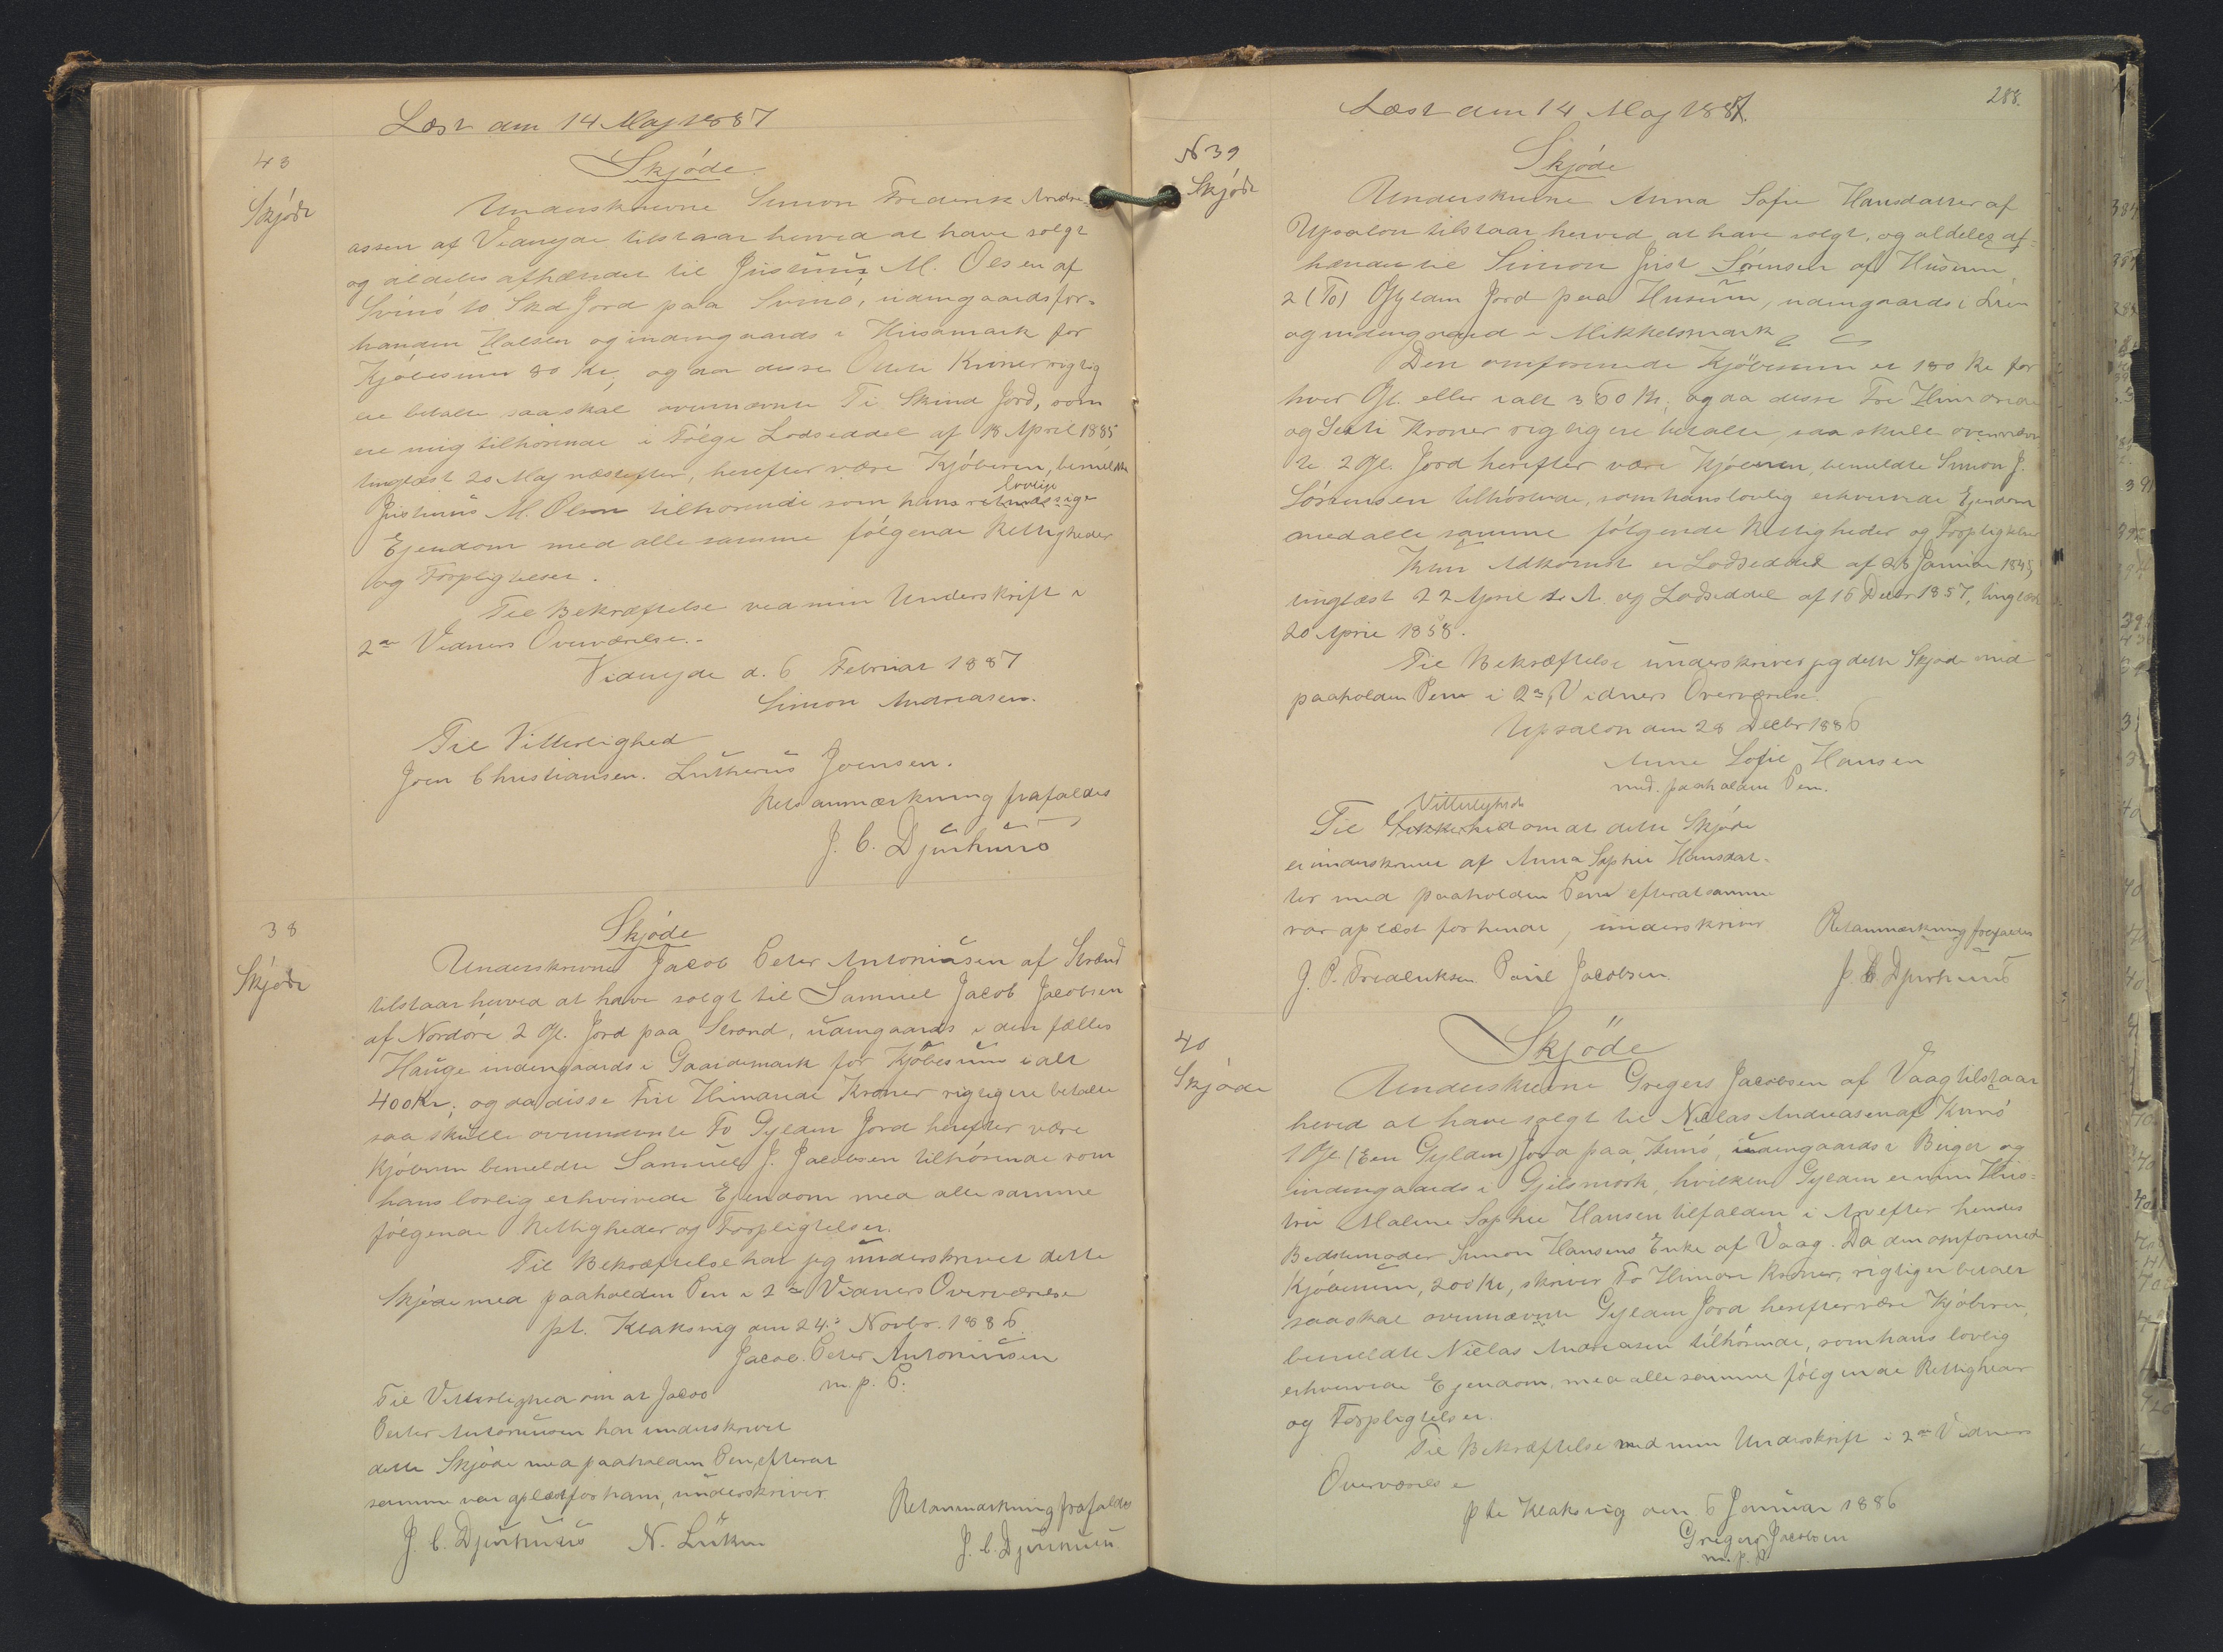 Læst den 14 Maj 1887
43
Skjøde
Skjøde
Underskrevne Simon Frederik Andre-
assen af Videnejde tilstaar herved at have solgt
og aldeles afhændet til Justinus M. Olsen af
Svinö 10 Skd Jord paa Svinö, udengaards for-
handen Halsen og indengaards i Husamark for
Kjöbesum 80 Kr, og da disse Otteti Kroner rigtig
ere betalte saa skal ovennævnte Ti Skind Jord, som
ere mig tilhörende i Fölge Lodseddel af 18 April 1885
tinglæst 20 Maj næstefter, herefter være Kjöberen, bemeldte
lovlige
Justinus M. Olsen tilhörende som hans retmæssige
Ejendom med alle samme fölgende Rettigheder
og Forpligtelser.
Til Bekræftelse ved min Underskrift i
2de Vidners Overværelse.
Videnejde d. 6 Februar 1887
Simon Andreasen.
Til Vitterlighed
Joen Christiansen. Lutherus Joensen.
Retsanmærkning frafaldes
J. C. Djurhuus
38
Skjöde
Skjöde
Underskrevne Jacob Peter Antoniusen af Strænd
tilstaar herved at have solgt til Samuel Jacob Jacobsen
af Nordöre 2 Gl. Jord paa Strænd, udengaards i den fælles
Hauge indengaards i Gaardemark for Kjöbesum ialt
400 Kr; og da disse Fire Hundrede Kroner rigtig ere betalte
saa skulle ovennævnte To Gylden Jord herefter være
Kjöberen bemeldte Samuel J. Jacobsen tilhörende som
hans lovlig erhvervede Ejendom med alle samme
fölgende Rettigheder og Forpligtelser.
Til Bekræftelse har jeg underskrevet dette
Skjöde med paaholden Pen i 2de Vidners Overværelse
pt. Klaksvig den 24de Novbr. 1886.
Jacob Peter Antoniusen
m. p. P.
Til Vitterlighed om at Jacob
Peter Antoniusen har underskrevet
dette Skjöde med paaholden Pen, efterat
samme var oplæst for ham, underskriver
Retanmærkning frafaldes
J. C. Djurhuus N. Lüken
J. C. Djurhuus
288.
Læst den 14 Maj 1887.
N 39
Skjöde
Skjöde
Underskrevne Anna Sofie Hansdatter af
Upsalon tilstaar herved at have solgt, og aldeles af-
hændet til Simon Just Sörensen af Husum
2 (To) Gylden Jord paa Husum, udengaards i Lien
og indengaard i Mikkelsmark
Den omforenede Kjöbesum er 180 Kr for
hver Gl. eller ialt 360 Kr; og da disse Tre Hundrede
og Sexti Kroner rigtig ere betalte, saa skulle ovennævn
te 2 Gl. Jord herefter være Kjöberen, bemeldte Simon J.
Sörensen tilhörende, som hans lovlig erhvervede Ejendom
med alle samme fölgende Rettigheder og Forpligtelser
Adkomst er Lodseddel af 28 Januar 1845,
tinglæst 22 April s. A. og Lodseddel af 16 Decbr 1857, tinglæst
20 April 1858.
Til Bekræftelse underskriver jeg dette Skjöde med
paaholden Pen i 2de Vidners Overværelse
Upsalon den 28 Decbr 1886
Anne Sofie Hansen
med paaholden Pen.
Vitterlighed
Til Sikkerhed om at dette Skjöde
er underskrevet af Anna Sophie Hansdat-
ter med paaholden Pen efterat samme
var oplæst for hende, underskriver
Retanmærkning frafaldes
J. P. Frederiksen. Poul Jacobsen.
J. C. Djurhuus
40
Skjöde
Skjöde
Underskrevne Gregers Jacobsen af Vaag tilstaar
herved at have solgt til Niclas Andreasen af Kunö
1 Gl (Een Gylden) Jord paa Kunö, udengaards i Beiger og
indengaards i Gjilsmörk, hvilken Gylden er min Hus-
tru Malene Sophie Hansen tilfalden i Arv efter hendes
Bedstemoder Simon Hansens Enke af Vaag. Da den omforenede
Kjöbesum, 200 Kr, skriver To Hundr Kroner, rigtig er betalt
saa skal ovennævnte Gylden Jord herefter være Kjöberen,
bemeldte Niclas Andreasen tilhörende, som hans lovlig
erhvervede Ejendom, med alle samme fölgende Rettigheder
og Forpligtelser.
Til Bekræftelse med min Underskrift i 2de Vidners
Overværelse
pte Klaksvig den 6 Januar 1886
Gregers Jacobsen
m. p. P.